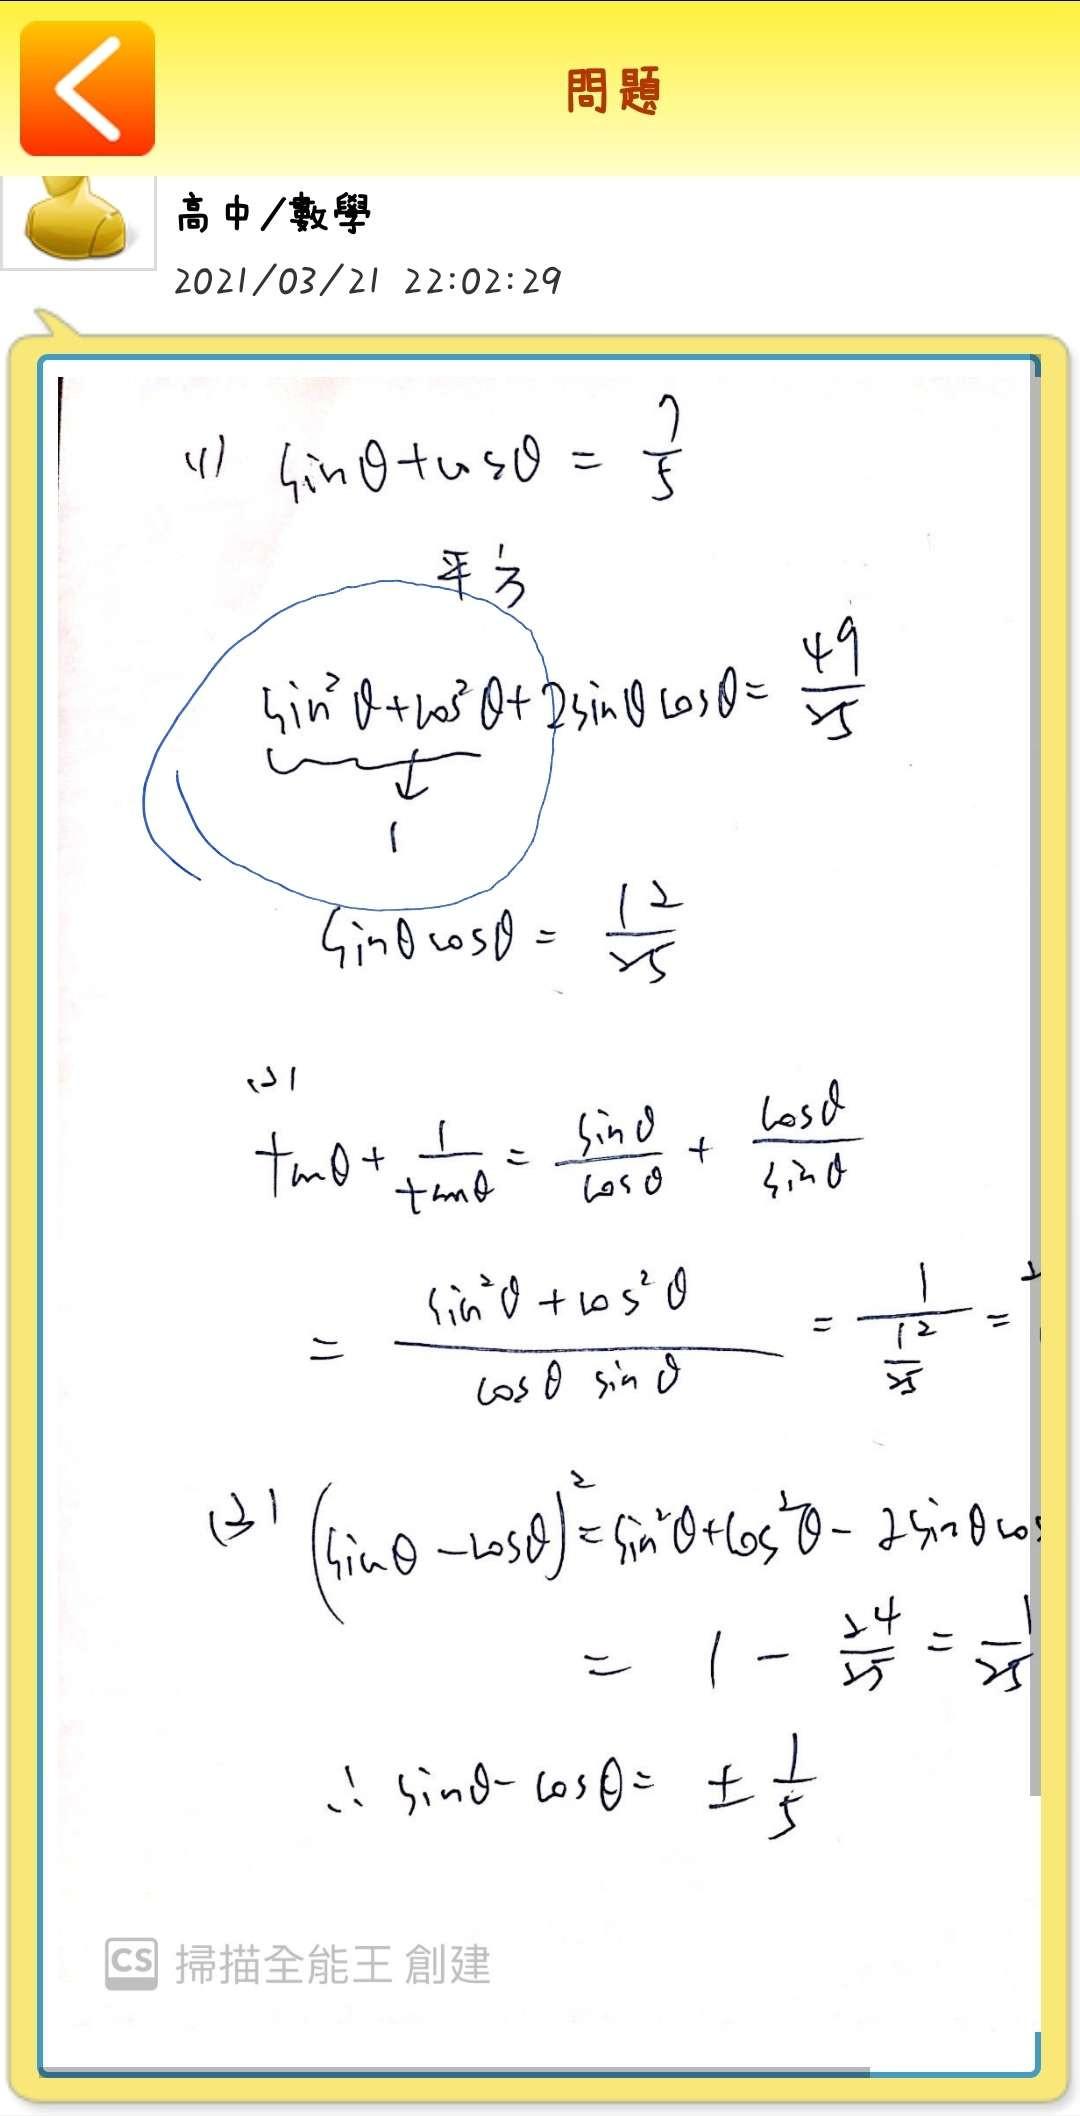 問題
高中/數學
2021/03/21 22:02:29
(1) sinθ+cosθ = 7/5
平方
sin²θ+cos²θ+2sinθcosθ= 49/25
1
sinθcosθ = 12/25
(2)
tanθ+ 1/tanθ = sinθ/cosθ + cosθ/sinθ
= sin²θ+cos²θ/cosθ sinθ = 1/(12/25) =
(3) (sinθ-cosθ)²=sin²θ+cos²θ- 2sinθcos
= 1 - 24/25 = 1/25
∴ sinθ- cosθ= ± 1/5
CS 掃描全能王 創建